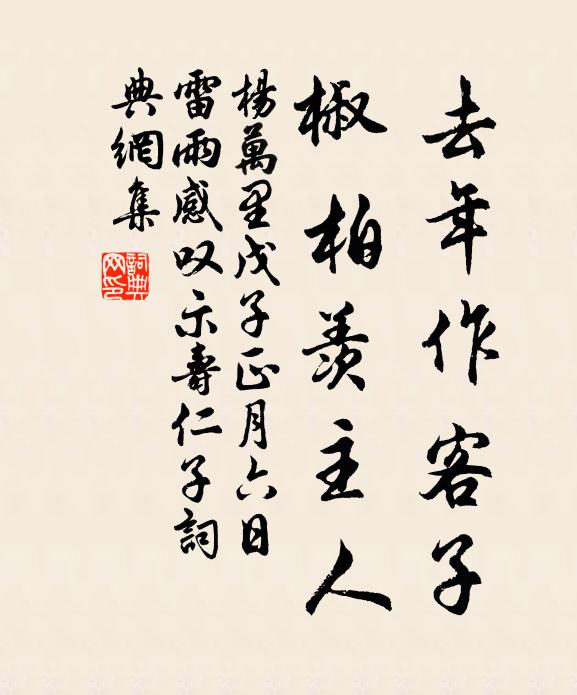 去年作客子
椒柏羨主人
楊萬里戊子正月六日
雷雨感叹示壽仁子詞
典網集
詞典网印